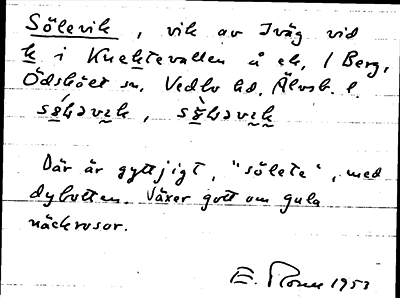 Sölevik, vik av Iväg vid
k i Knektevallen å ek, 1 Berg,
Ödsköet sn. Vedbo hd. Älvsb. l.
Där är gyttjigt, "sölete", med
dybotten. Växer gott om gula
näckrosor.
E. 1953